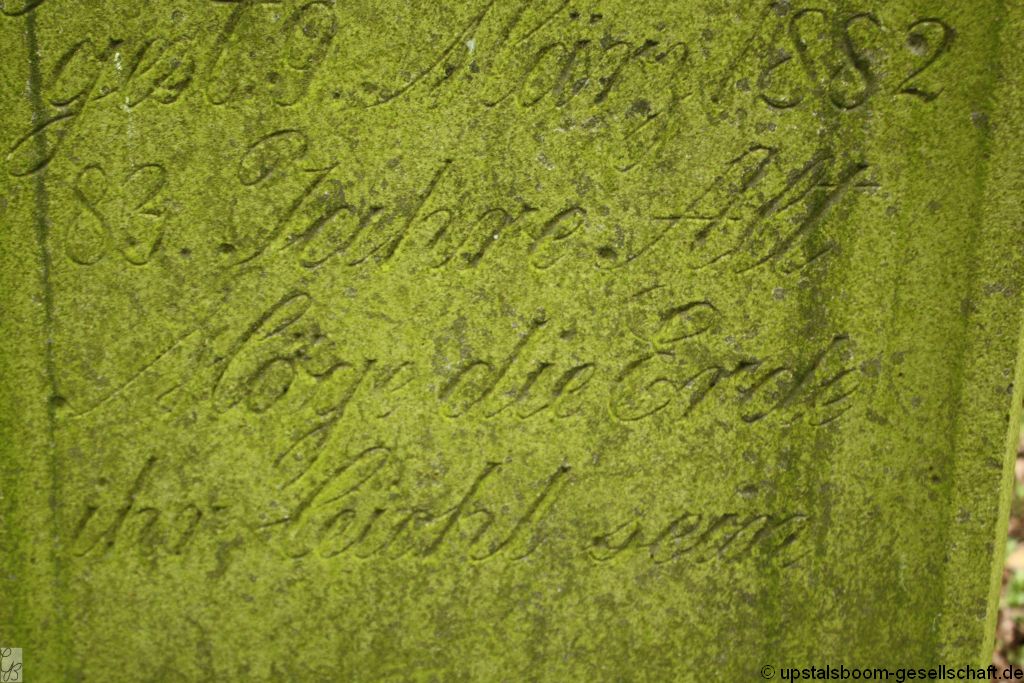 gest 9 März 1882
83. Jahre Alt
Möge die Erde
ihr leicht sein
© upstalsboom-gesellschaft.de